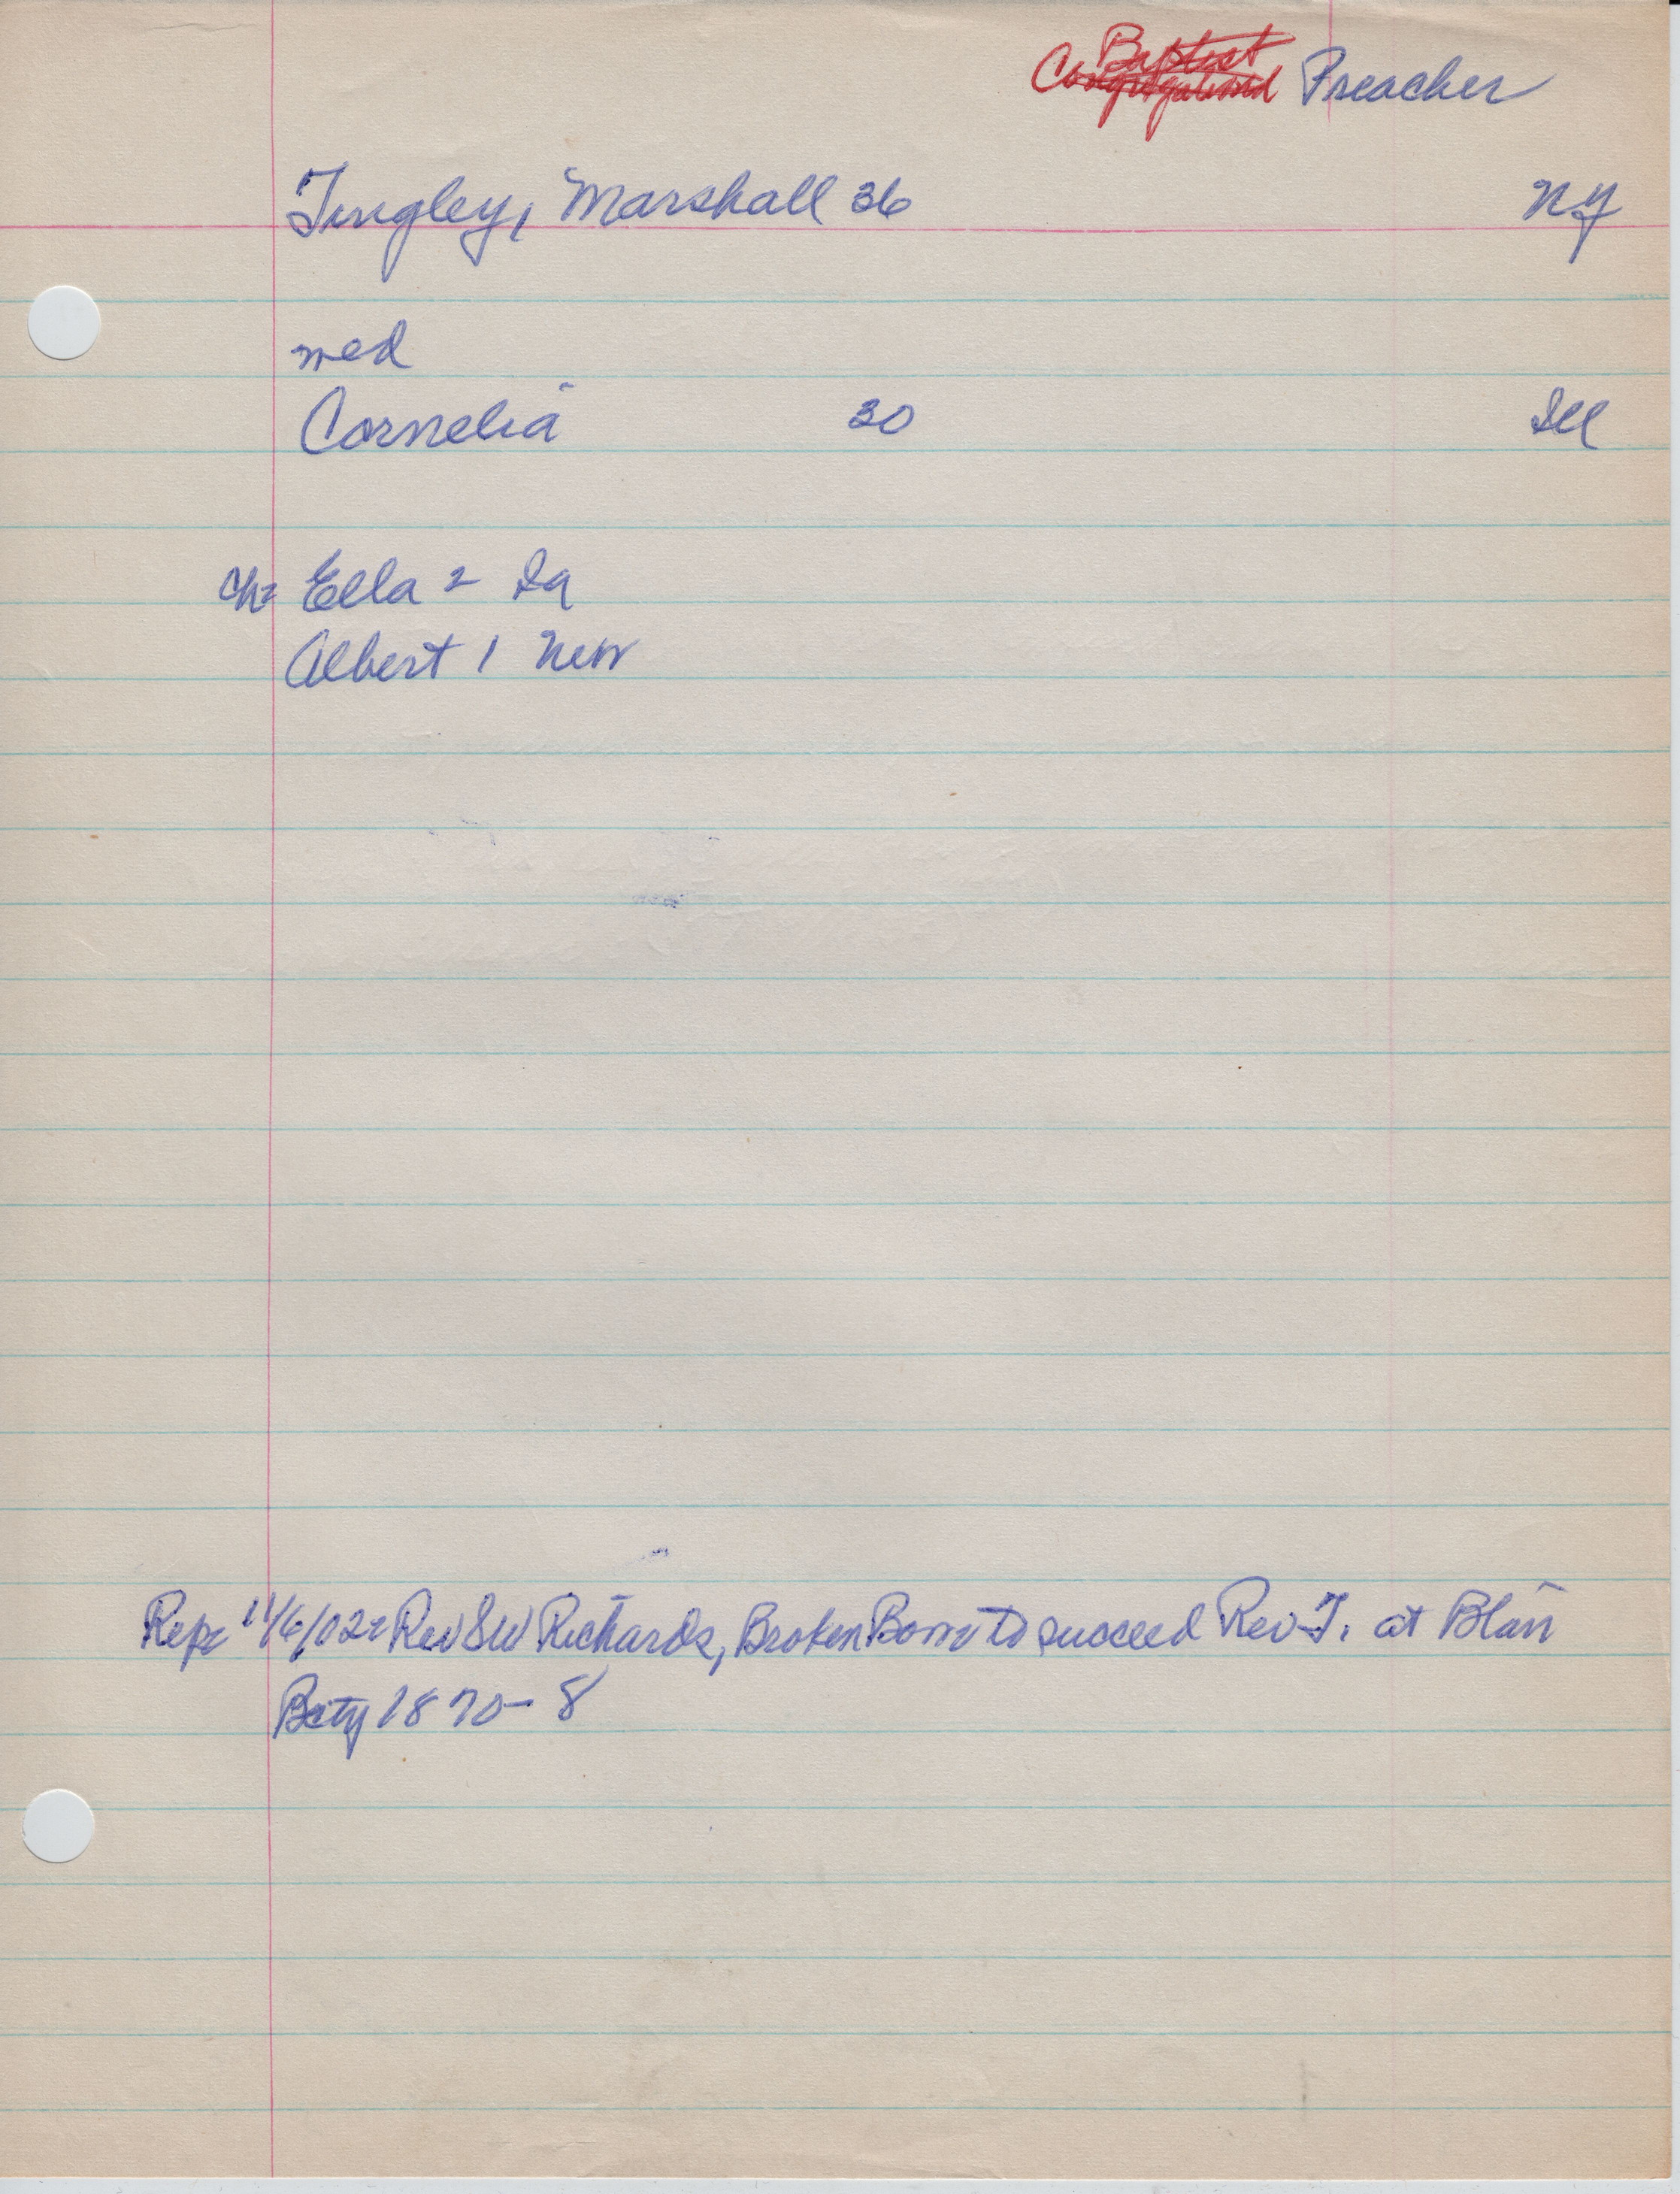 Baptist
Congregational Preacher
Tingley, Marshall 36 NY
med
Cornelia 30 Ill
Ch: Ella 2 Ia
Albert 1 Neb
Repr 11/6/02: Rev SW Richards, Broken Bow to succeed Rev T. at Blair
Bcty 1870-8